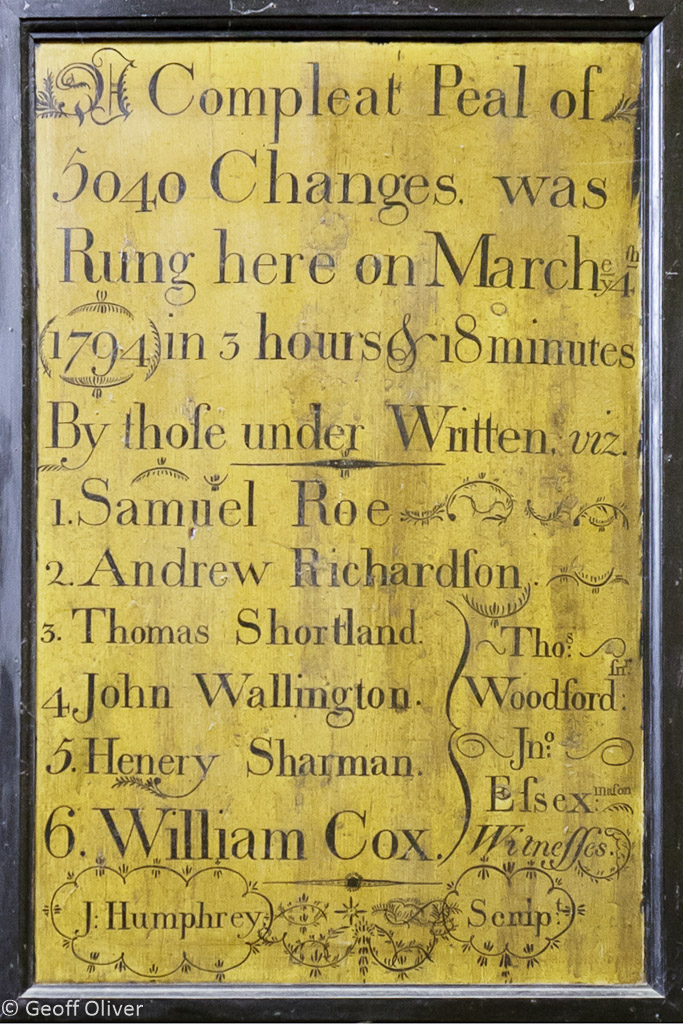 A Compleat Peal of
5040 Changes. was
Rung here on March yᵉ 4ᵗʰ
1794 in 3 hours & 18 minutes
By thoſe under Written, viz.
1. Samuel Roe
2. Andrew Richardſon.
3. Thomas Shortland.
4. John Wallington.
5. Henery Sharman.
6. William Cox.
Thoˢ.
Woodford: ſnʳ
Jnº.
Eſsex: maſon
Witneſſes.
J: Humphrey. Scripᵗ.
© Geoff Oliver